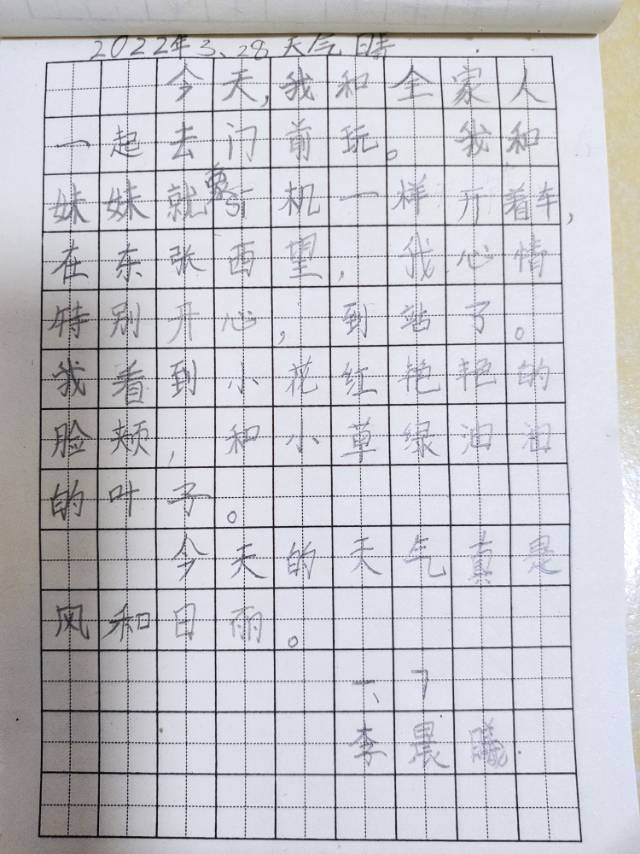 2022年3.28天气晴
今天,我和全家人
一起去门前玩。我和
妹妹就像司机一样开着车,
在东张西望,我心情
特别开心,到站了。
我看到小花红艳艳的
脸颊,和小草绿油油
的叶子。
今天的天气真是
风和日丽。
李晨曦